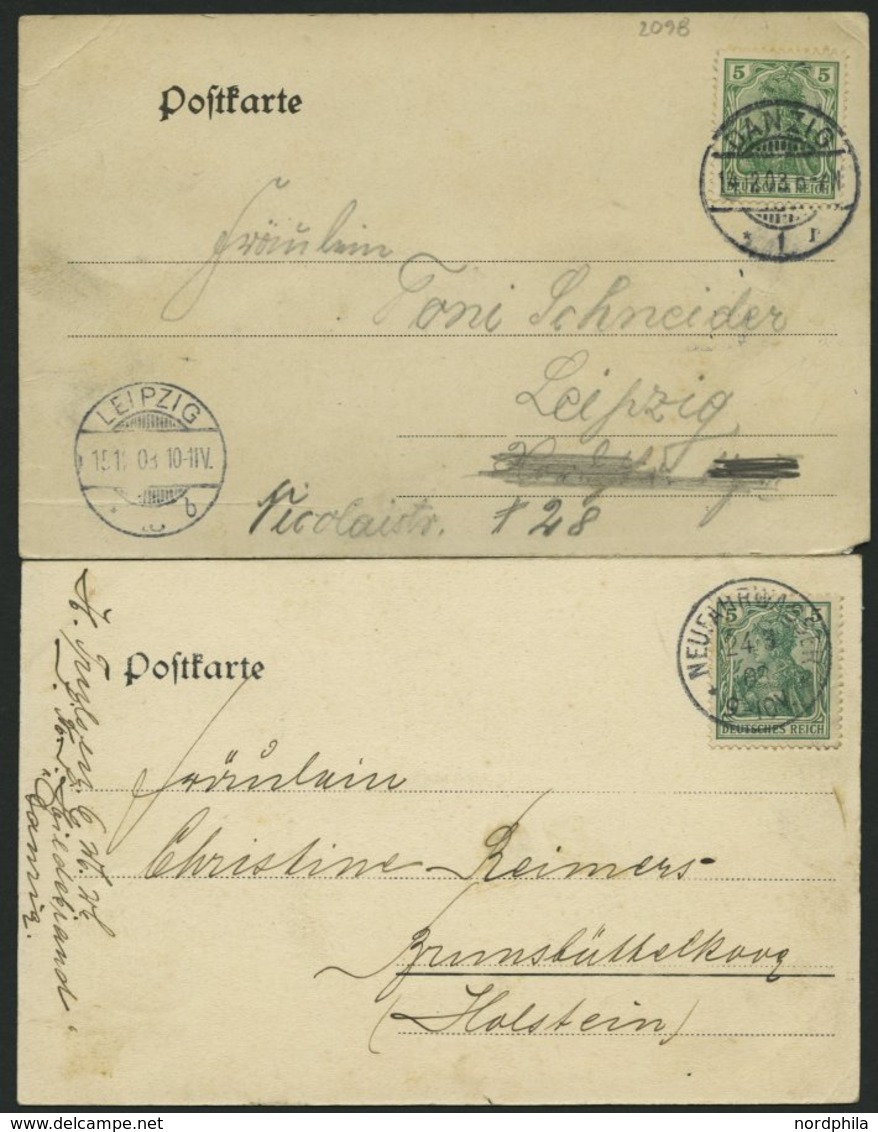 2098
Postkarte
5 5
DANZIG
14.12.03. 6-7N
DEUTSCHES REICH
* 1 r
Fräulein
Toni Schneider
Leipzig
LEIPZIG
15.12.03. 10-11V.
* b
Nicolaistr. # 28
5 5
NEUFAHRWASSER
24
9-10V.
DEUTSCHES REICH
Postkarte
Fräulein
Christine Reimers
Brunsbüttelkoog
(Holstein)
Danzig.
nordphila